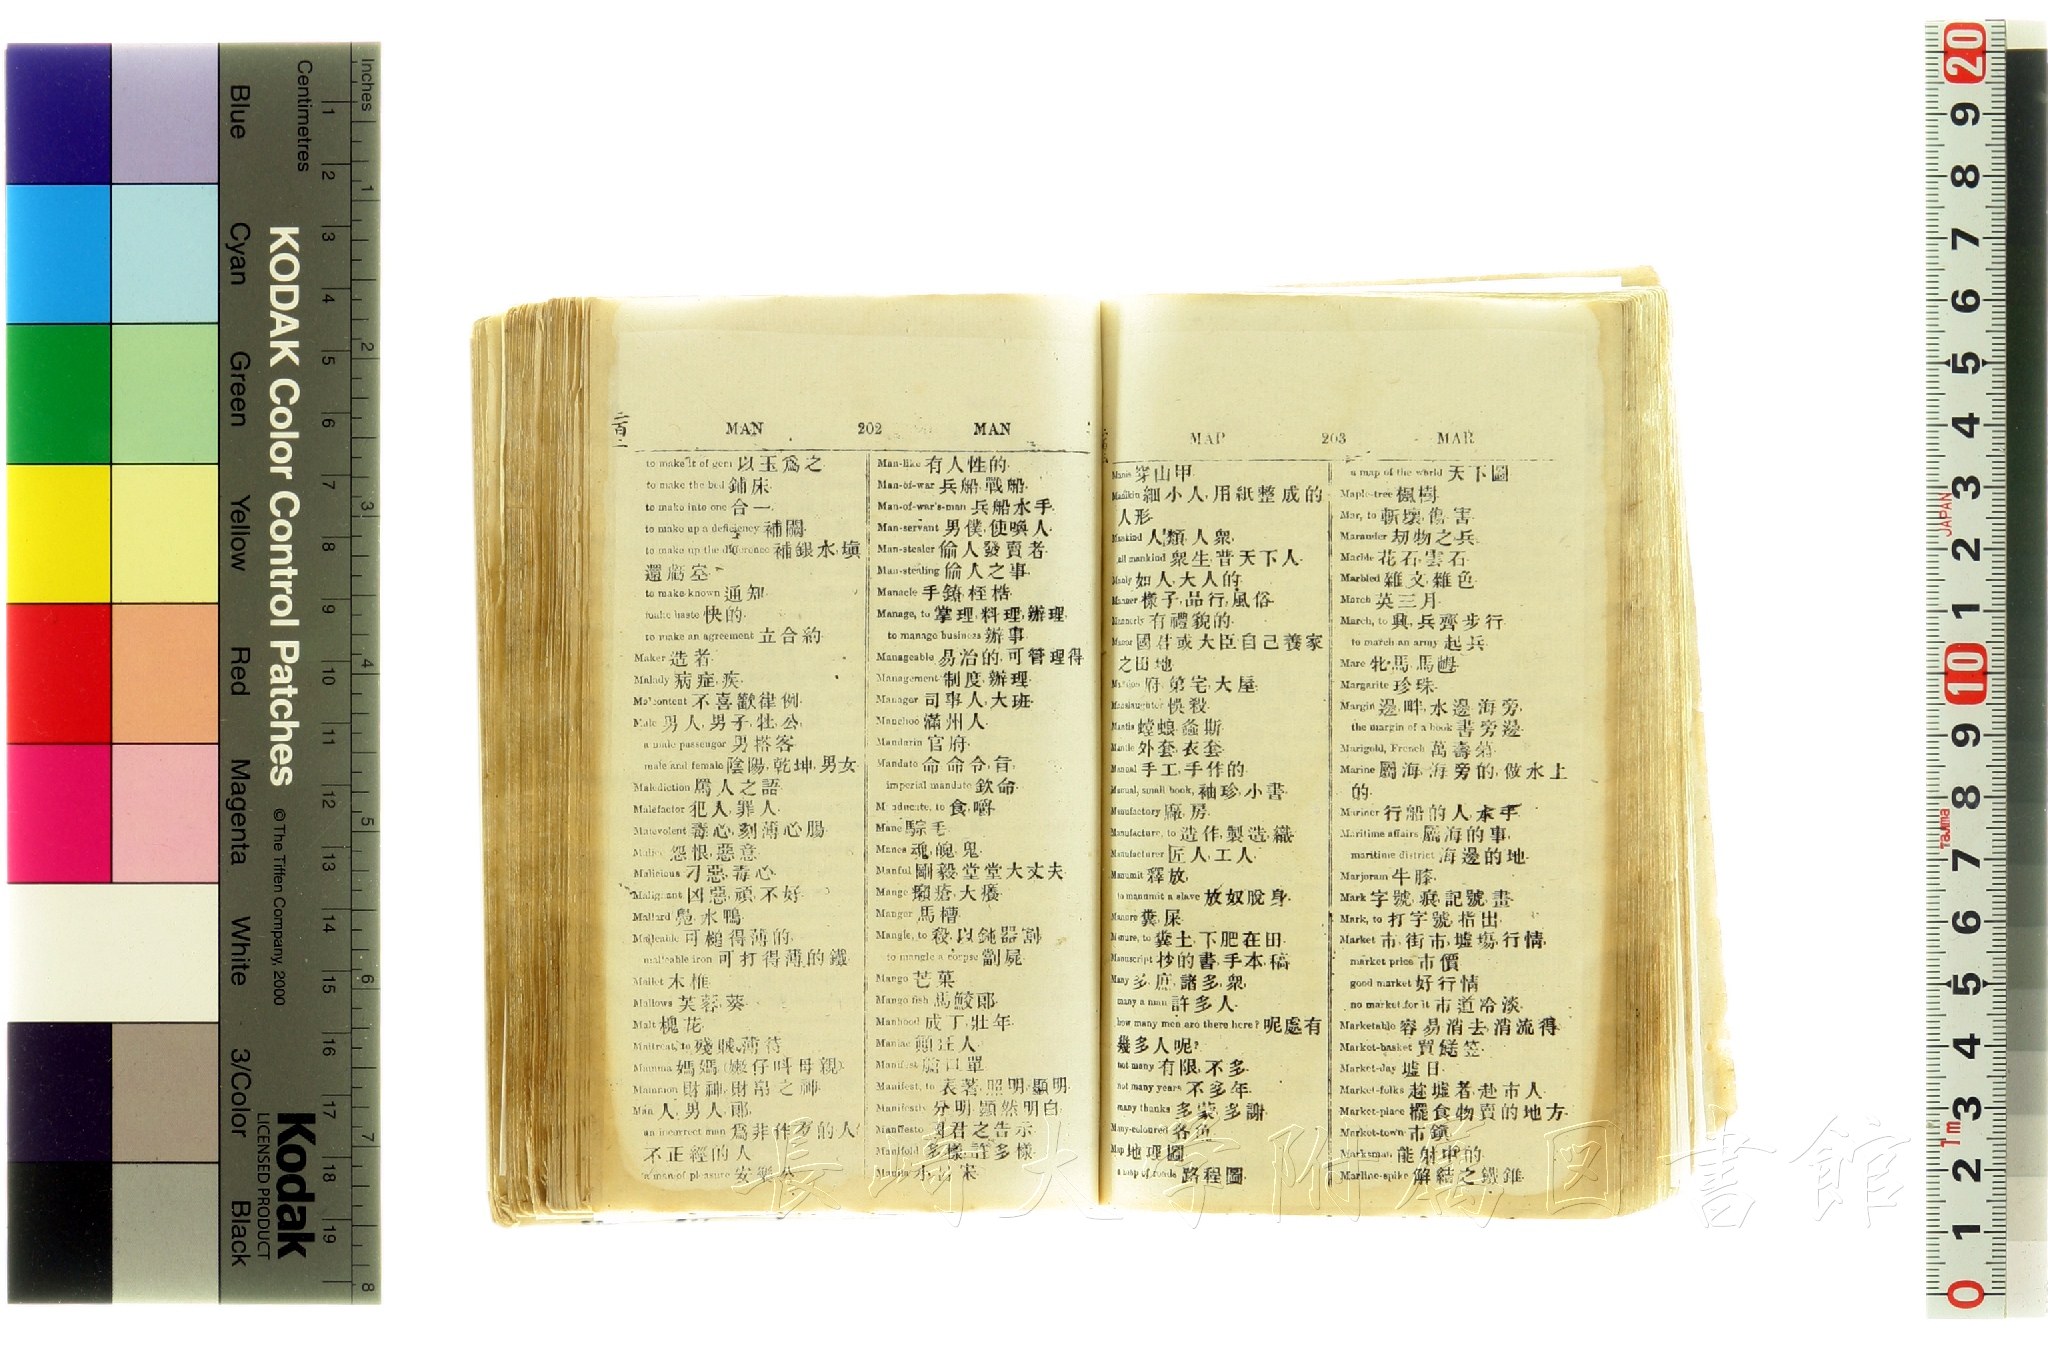 Inches
Centimetres
KODAK Color Control Patches
© The Tiffen Company, 2000
Kodak
LICENSED PRODUCT
Blue
Cyan
Green
Yellow
Red
Magenta
White
3/Color
Black
MAN 202 MAN
to make it of gem 以玉爲之
to make the bed 鋪床
to make into one 合一
to make up a deficiency 補闕
to make up the difference 補銀水,塡
還虧空
to make known 通知
make haste 快的
to make an agreement 立合約
Maker 造者
Malady 病症,疾
Malcontent 不喜歡律例
Male 男人,男子,牡,公
a male passenger 男搭客
male and female 陰陽,乾坤,男女
Malediction 罵人之語
Malefactor 犯人,罪人
Malevolent 毒心,刻薄心腸
Malice 怨恨,惡意
Malicious 刁惡,毒心
Malignant 凶惡,頑,不好
Mallard 鳧,水鴨
Malleable 可槌得薄的
malleable iron 可打得薄的鐵
Mallet 木椎
Mallows 芙蓉,葵
Malt
Maltreat, to 殘賊,薄待
Mamma 媽媽
Mammon 財神,財帛之神
Man 人,男人,
an incorrect man 爲非作歹的人
不正經的人
a man of pleasure 安樂公
Man-like 有人性的
Man-of-war 兵船,戰船
Man-of-war's-man 兵船水手
Man-servant 男僕,使喚人
Man-stealer 偷人發賣者
Man-stealing 偷人之事
Manacle 手鐐,桎梏
Manage, to 掌理,料理,辦理
to manage business 辦事
Manageable 易治的,可管理得
Management 制度,辦理
Manager 司事人,大班
Manchoo 滿州人
Mandarin 官府
Mandate 命,命令,旨
imperial mandate 欽命
Manducate, to 食,嚼
Mane 騌毛
Manes 魂,魄,鬼
Manful 剛毅,堂堂大丈夫
Mange 癩瘡,大癢
Manger 馬槽
Mangle, to 殺,以鈍器割
to mangle a corpse 劏屍
Mango 芒菓
Mango fish 馬鮫郎
Manhood 成丁,壯年
Maniac 顛狂人
Manifest 艙口單
Manifest, to 表著,照明,顯明
Manifestly 分明,顯然明白
Manifesto 國君之告示
Manifold 多樣,許多樣
Manila 小呂宋
MAP 203 MAR
Manis 穿山甲
Manikin 細小人,用紙整成的
人形
Mankind 人類,人衆
all mankind 衆生,普天下人
Manly 如人,大人的
Manner 樣子,品行,風俗
Mannerly 有禮貌的
Manor 國君或大臣自己養家
之田地
Mansion 府,第宅,大屋
Manslaughter 悞殺
Mantis 螳螂,螽斯
Mantle 外套,衣套
Manual 手工,手作的
Manual, small book, 袖珍,小書
Manufactory 廠,房
Manufacture, to 造作,製造,織
Manufacturer 匠人,工人
Manumit 釋放
to manumit a slave 放奴脫身
Manure 糞,屎
Manure, to 糞土,下肥在田
Manuscript 抄的書,手本,稿
Many 多,庶,諸多,衆
many a man 許多人
how many men are there here? 呢處有
幾多人呢?
not many 有限,不多
not many years 不多年
many thanks 多蒙,多謝
Many-coloured 各色
Map 地理圖
a map of roads 路程圖
a map of the world 天下圖
Maple-tree 楓樹
Mar, to 斬壞,傷害
Marauder 刼物之兵
Marble 花石,雲石
Marbled 雜文,雜色
March 英三月
March, to 興,兵齊步行
to march an army 起兵
Mare 牝馬,馬𡛖
Margarite 珍珠
Margin 邊,畔,水邊,海旁
the margin of a book 書旁邊
Marigold, French 萬壽菊
Marine 屬海,海旁的,做水上
的
Mariner 行船的人,水手
Maritime affairs 屬海的事
maritime district 海邊的地
Marjoram 牛膝
Mark 字號,痕,記號,畫
Mark, to 打字號,指出
Market 市,街市,墟塲,行情
market price 市價
good market 好行情
no market for it 市道冷淡
Marketable 容易消去,消流得
Market-basket
Market-day 墟日
Market-folks 趁墟者,赴市人
Market-place 擺食物賣的地方
Market-town 市鎭
Marksman 能射中的
Marline-spike 解結之鐵錐
長崎大学附属図書館
JAPAN
Tajima
1m